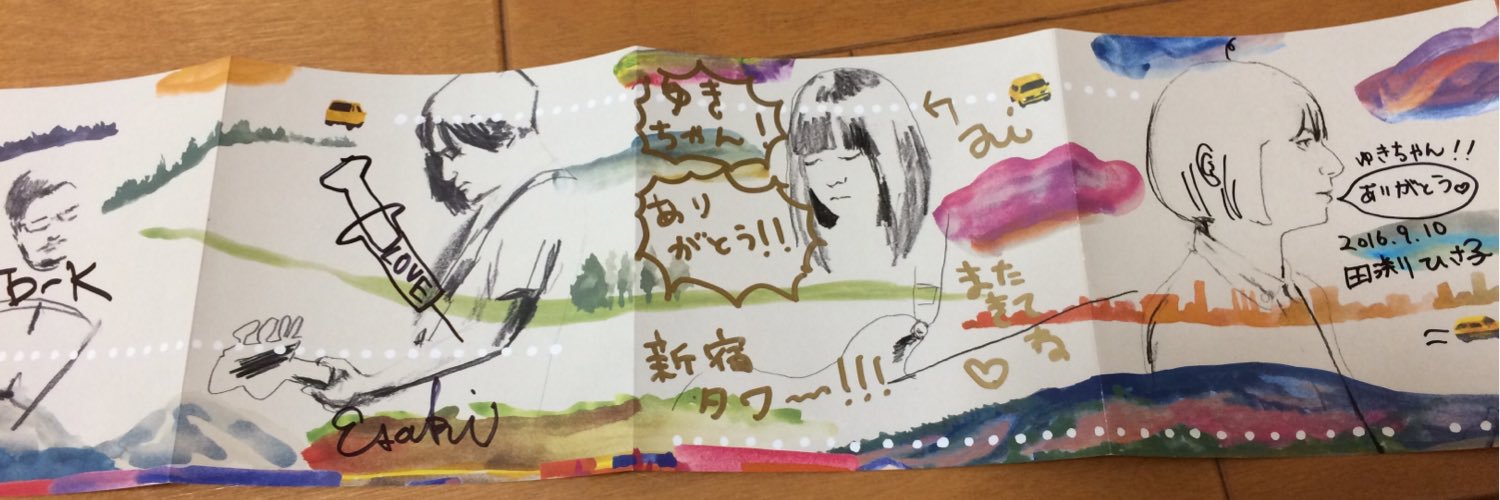 LOVE
Esaki
ゆき
ちゃん!
あり
がとう!!
新宿
タワー!!!
ai
また
きて
ね
ゆきちゃん!!
ありがとう
2016.9.10
田渕ひさ子